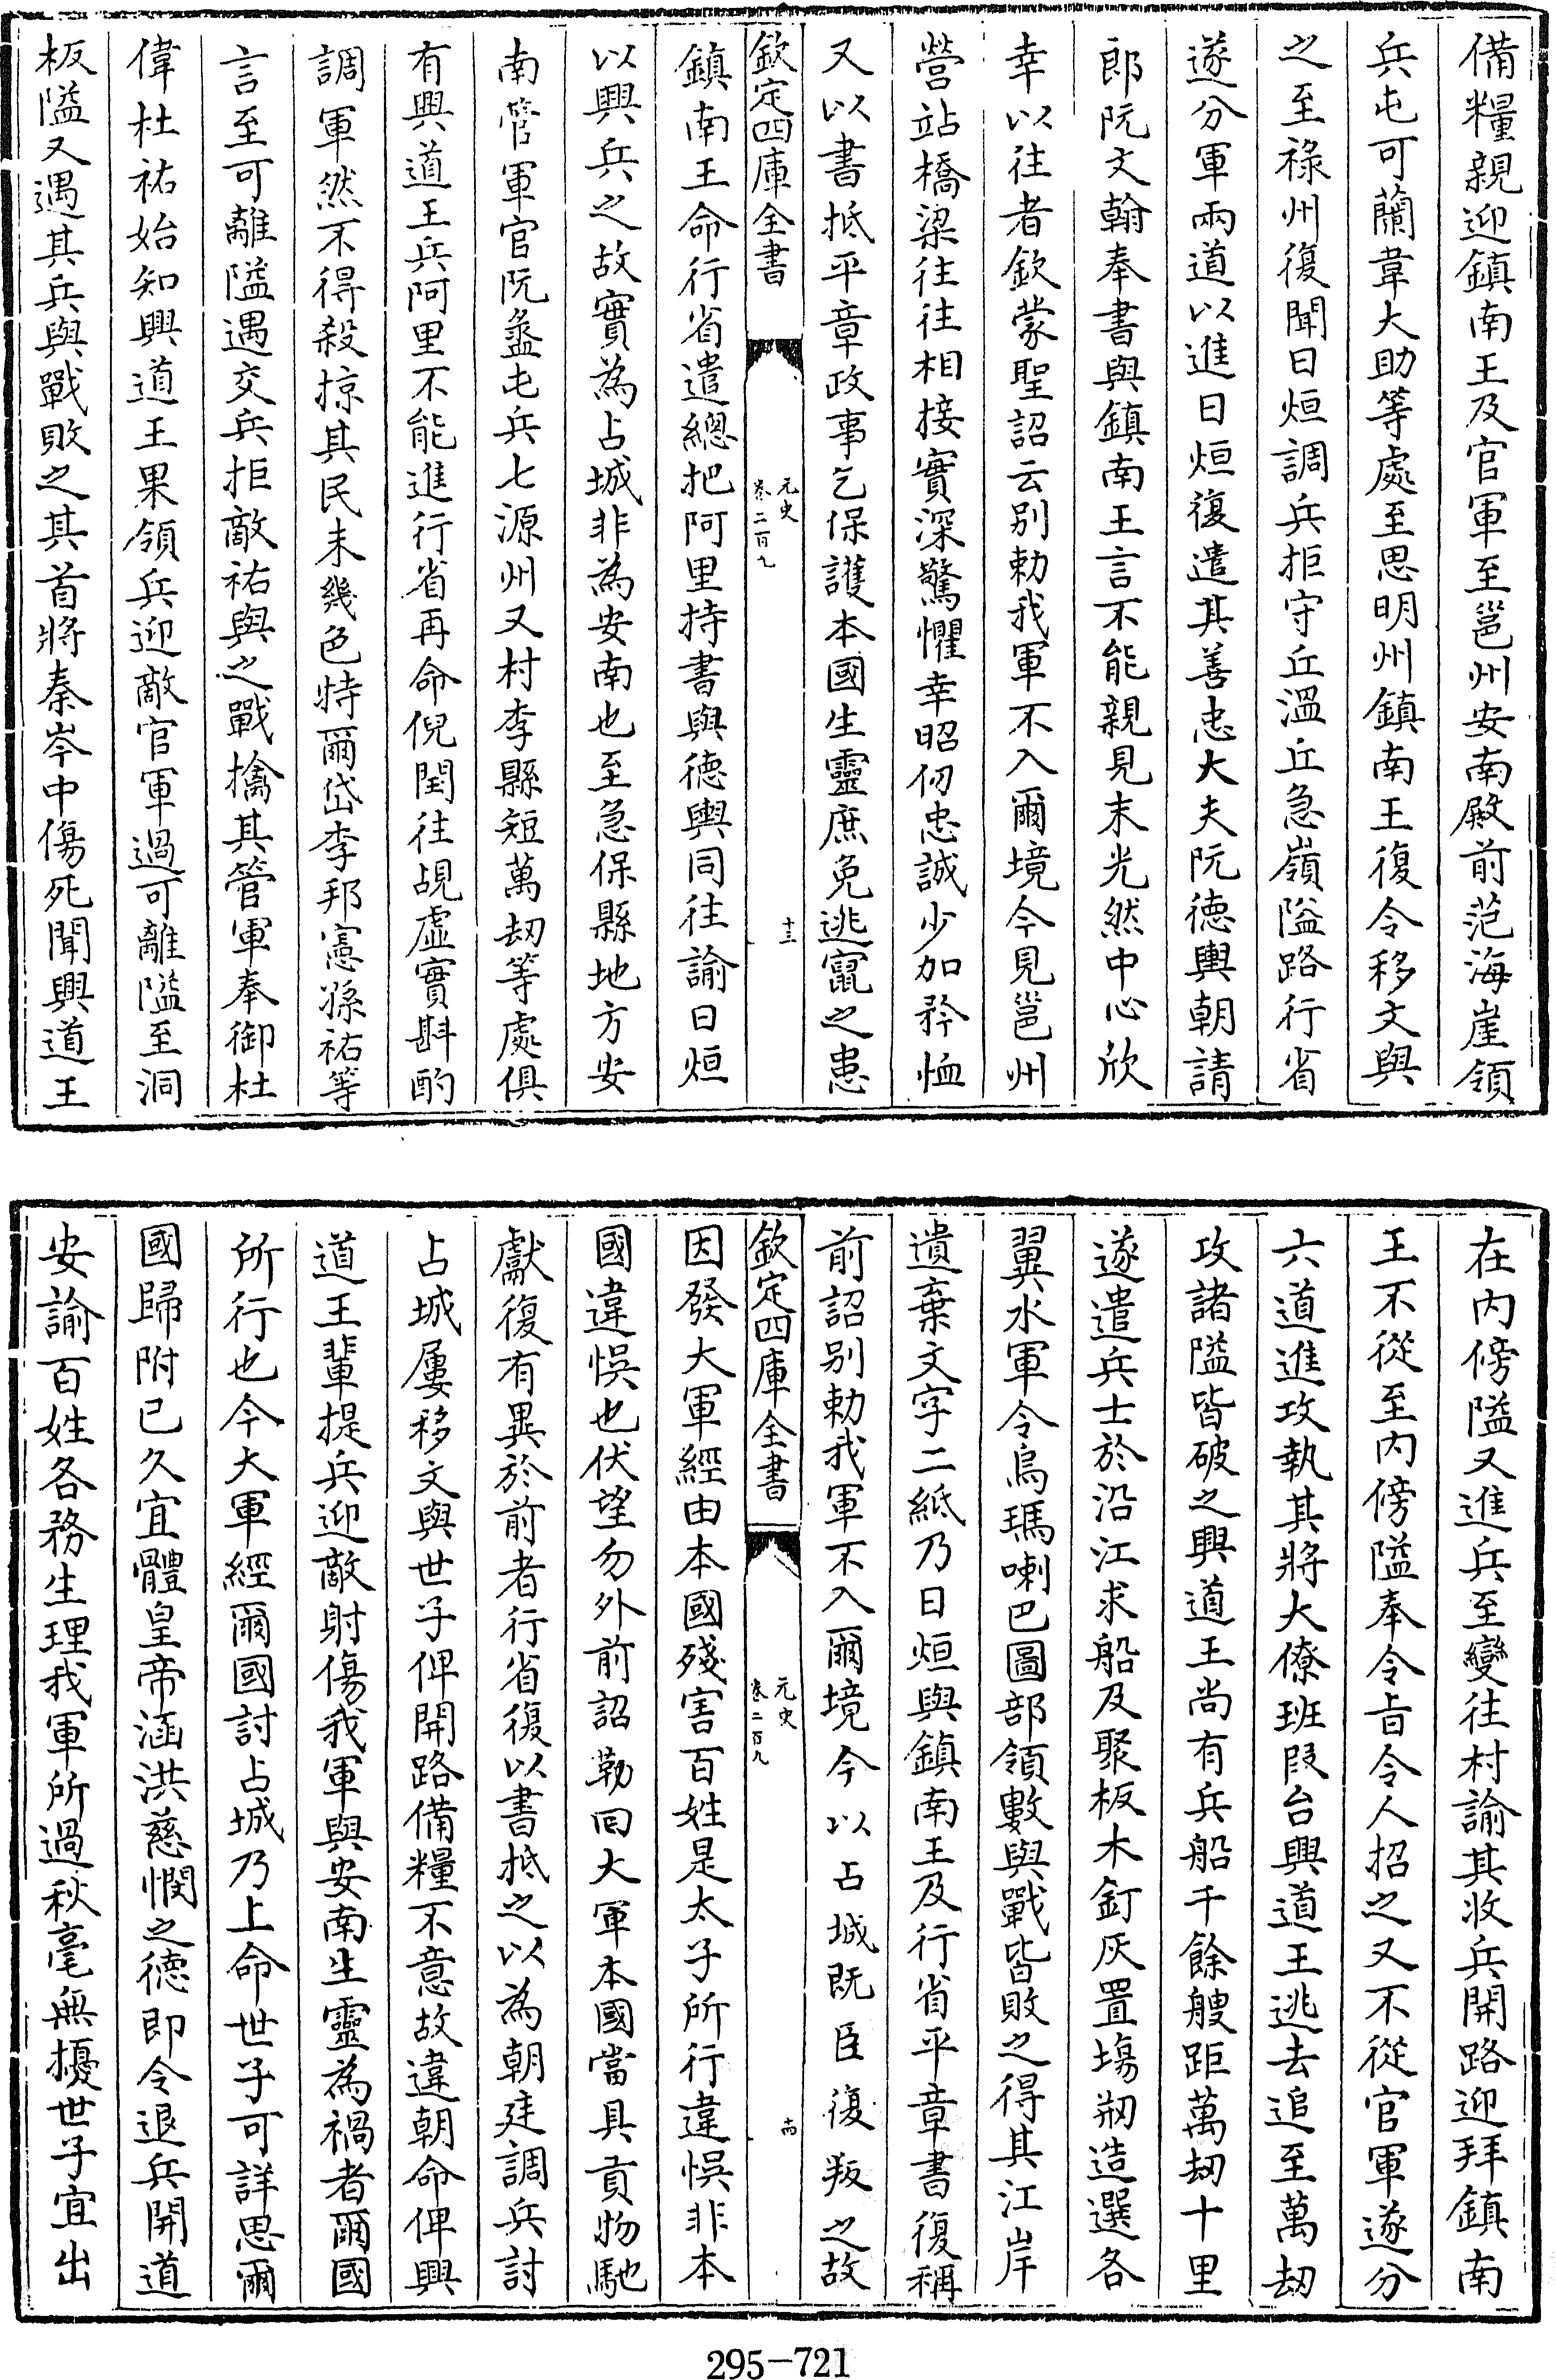 備糧親迎鎮南王及官軍至邕州安南殿前范海崖領
兵屯可蘭韋大助等處至思明州鎮南王復令移文與
之至祿州復聞日烜調兵拒守丘溫丘急嶺隘路行省
遂分軍兩道以進日烜復遣其善忠大夫阮德輿朝請
郎阮文翰奉書與鎮南王言不能親見末光然中心欣
幸以往者欽蒙聖詔云别勅我軍不入爾境今見邕州
營站橋梁往往相接實深驚懼幸昭仞忠誠少加矜恤
又以書抵平章政事乞保護本國生靈庶免逃竄之患
欽定四庫全書
元史
卷二百九
十三
鎮南王命行省遣總把阿里持書與德輿同往諭日烜
以興兵之故實為占城非為安南也至急保縣地方安
南管軍官阮盝屯兵七源州又村李縣短萬劫等處俱
有興道王兵阿里不能進行省再命倪閏往覘虛實斟酌
調軍然不得殺掠其民未幾色特爾岱李邦憲孫祐等
言至可離隘遇交兵拒敵祐與之戰擒其管軍奉御杜
偉杜祐始知興道王果領兵迎敵官軍過可離隘至洞
板隘又遇其兵與戰敗之其首將秦岑中傷死聞興道王
在内傍隘又進兵至變往村諭其收兵開路迎拜鎮南
王不從至内傍隘奉令旨令人招之又不從官軍遂分
六道進攻執其將大僚班段台興道王逃去追至萬劫
攻諸隘皆破之興道王尚有兵船千餘艘距萬劫十里
遂遣兵士於沿江求船及聚板木釘灰置塲剏造選各
翼水軍令烏瑪喇巴圖部領數與戰皆敗之得其江岸
遺棄文字二紙乃日烜與鎮南王及行省平章書復稱
前詔别勅我軍不入爾境今以占城既臣復叛之故
欽定四庫全書
元史
卷二百九
十四
因發大軍經由本國殘害百姓是太子所行違悞非本
國違悞也伏望勿外前詔勒回大軍本國當具貢物馳
獻復有異於前者行省復以書抵之以為朝廷調兵討
占城屢移文與世子俾開路備糧不意故違朝命俾興
道王輩提兵迎敵射傷我軍與安南生靈為禍者爾國
所行也今大軍經爾國討占城乃上命世子可詳思爾
國歸附已久宜體皇帝涵洪慈憫之德即令退兵開道
安諭百姓各務生理我軍所過秋毫無擾世子宜出
295-721